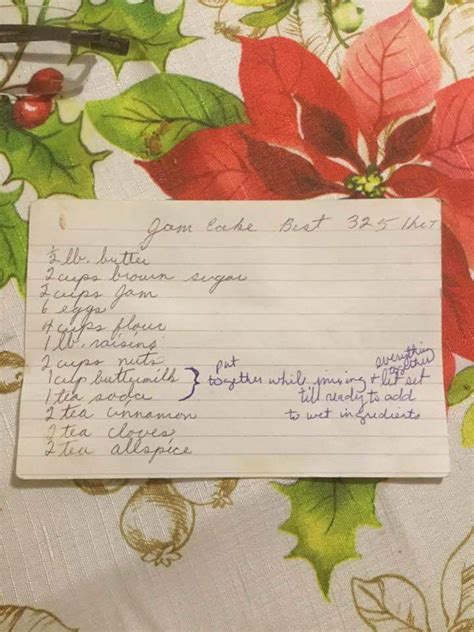 Jam Cake Best 325 1 hr
½ lb. butter
2 cups brown sugar
2 cups Jam
6 eggs
4 cups flour
1 lb. raisins
2 cups nuts
1 cup buttermilk
1 tea soda
2 tea cinnamon
2 tea cloves
2 tea allspice
put everything other
together while mixing + let set
till ready to add
to wet ingredients